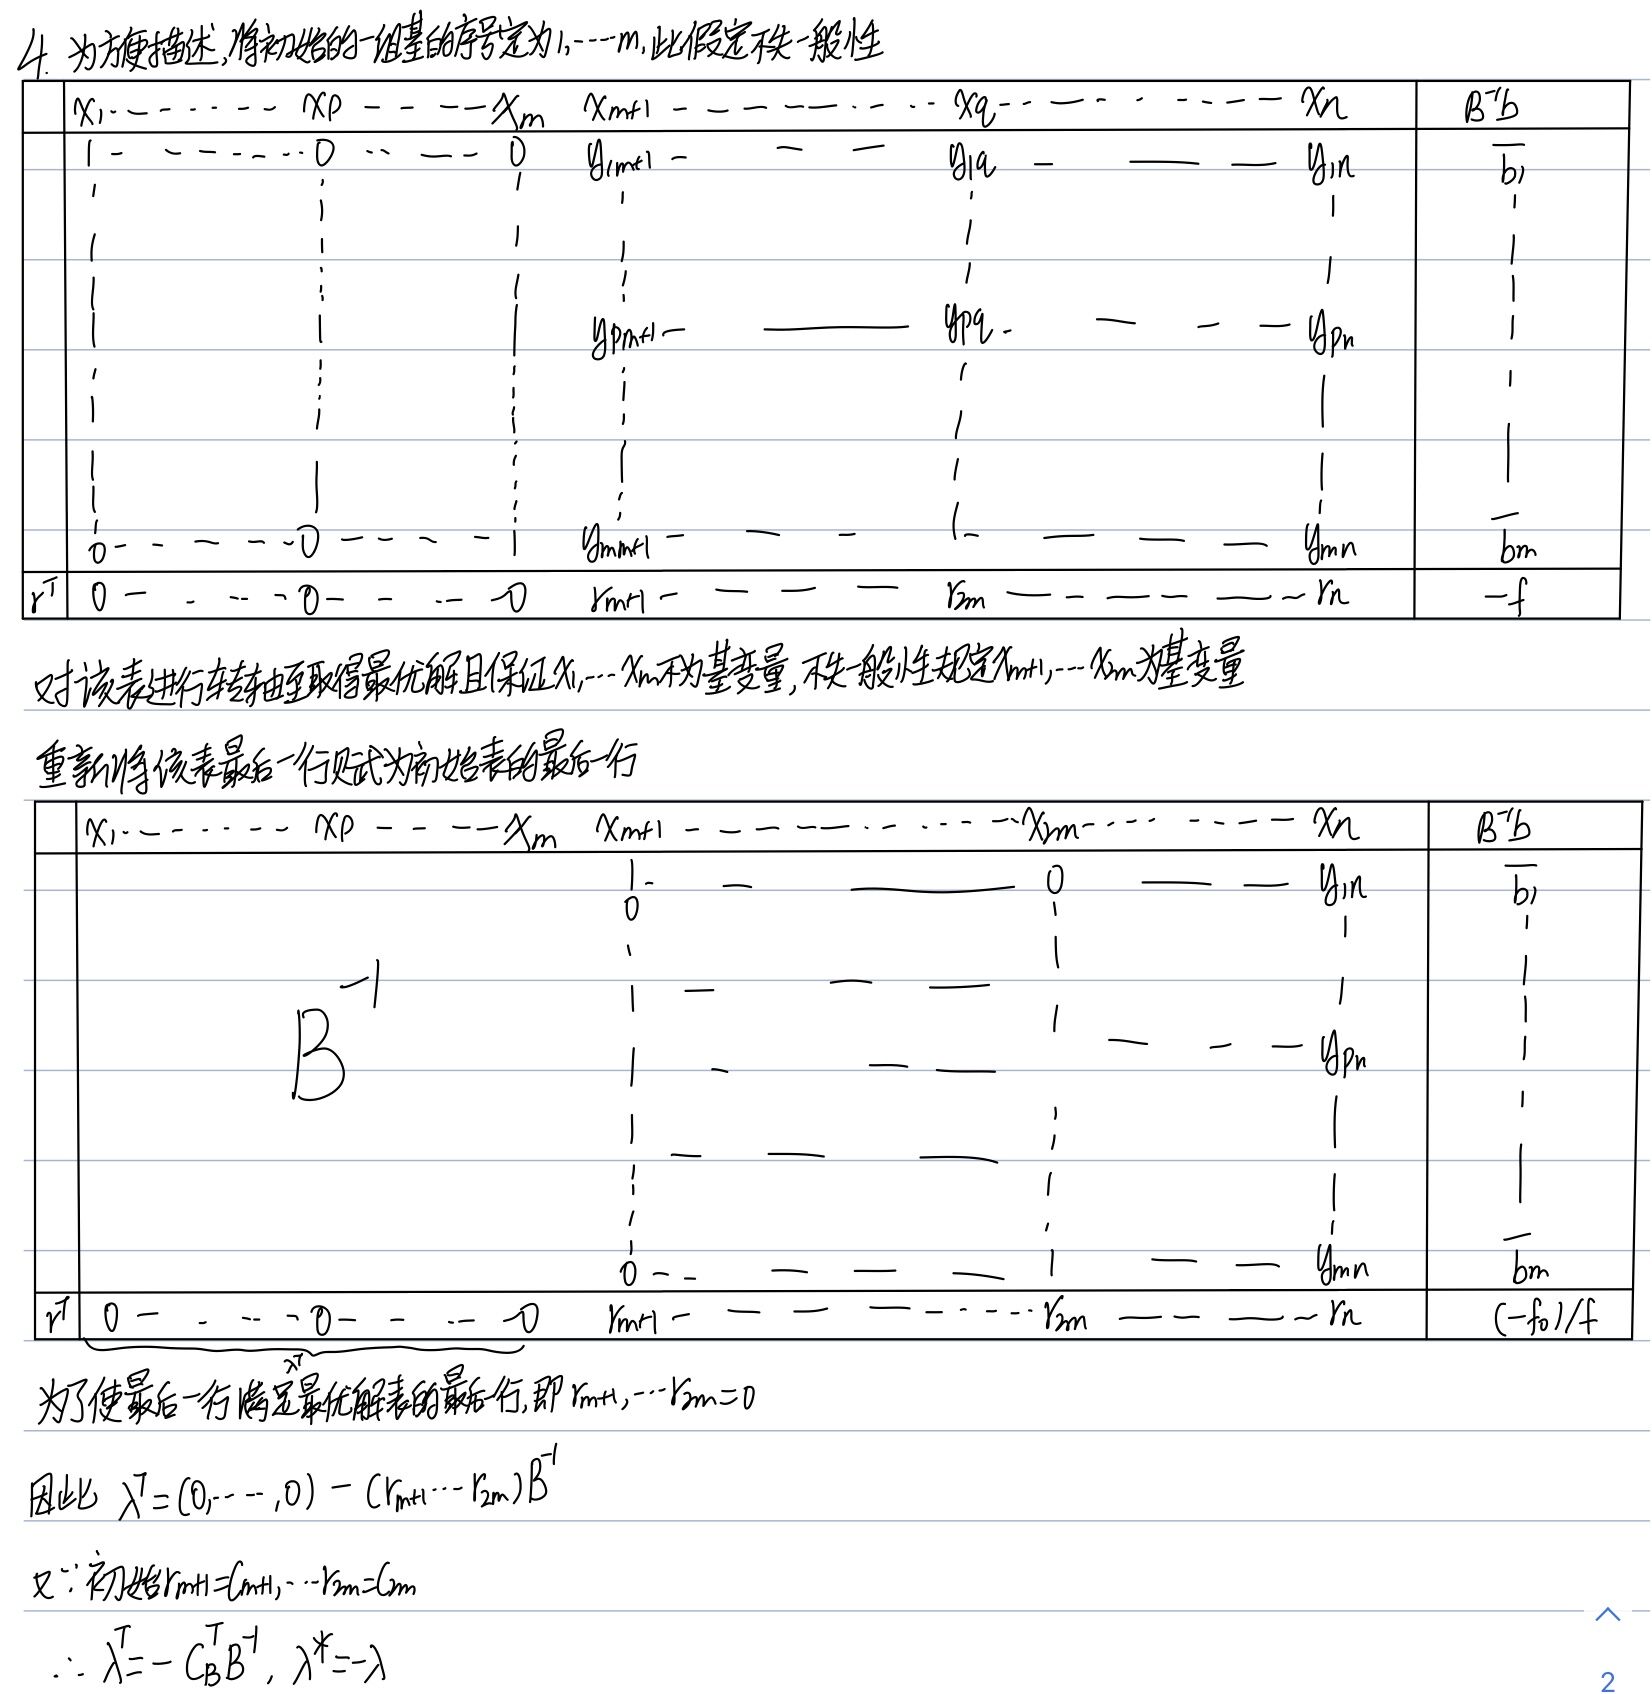 4. 为方便描述,将初始的一组基的序号定为1,----m,此假定不失一般性
x₁ ------- xp ------ xm xm+1 ------- xq ------- xn B⁻¹b
1 ------- 0 ------ 0 y1m+1 ------ y1q ------ y1n b̄₁
ypm+1 ------ ypq ------ ypn
0 ------- 0 ------ 1 ymm+1 ------ ymn b̄m
rᵀ 0 ------ 0 ------ 0 rm+1 ------ r2m ------ rn -f
对该表进行转轴至取得最优解且保证x₁,---xm不为基变量,不失一般性规定xm+1,---x2m为基变量
重新将该表最后一行赋为初始表的最后一行
x₁ ------- xp ------ xm xm+1 ------- x2m ------- xn B⁻¹b
1 ------ 0 ------ y1n b̄₁
0
B⁻¹ ypn
0 ------ 1 ------ ymn b̄m
rᵀ 0 ------ 0 ------ 0 rm+1 ------ r2m ------ rn (-f₀)/f
λᵀ
为了使最后一行满足最优解表的最后一行,即rm+1,---r2m=0
因此 λᵀ=(0,----,0) - (rm+1---r2m)B⁻¹
又∵初始rm+1=Cm+1,---r2m=C2m
∴ λᵀ=- C_BᵀB⁻¹, λ*=-λ
2